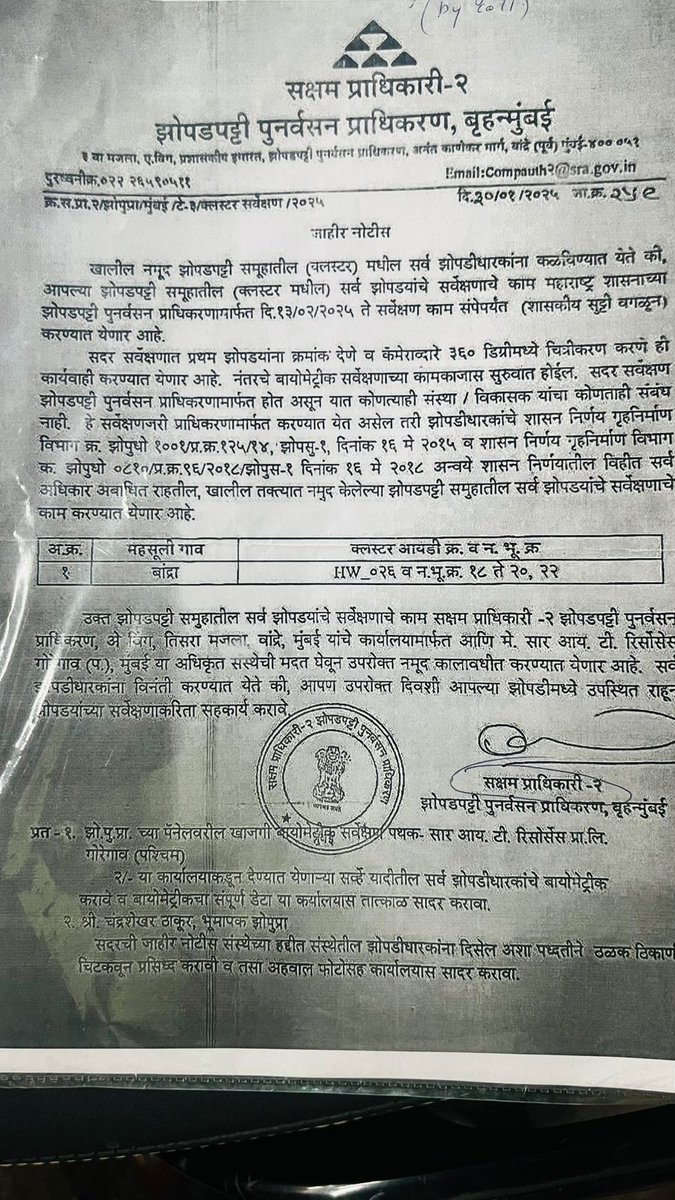 (by
सक्षम प्राधिकारी-२
झोपडपट्टी पुनर्वसन प्राधिकरण, बृहन्मुंबई
३ या मजला, ए.विंग, प्रशासकीय इमारत, झोपडपट्टी पुनर्वसन प्राधिकरण, अनंत काणेकर मार्ग, बांद्रे (पूर्व) मुंबई-४०० ०५१
दुरध्वनीक्र.०२२ २६५९०५११ Email:Compauth2@sra.gov.in
क्र.स.प्रा.२/झोपुप्रा/मुंबई /टे-इ/क्लस्टर सर्वेक्षण /२०२५ दि.३०/०१/२०२५ जा.क्र. २५९
जाहीर नोटीस
खालील नमूद झोपडपट्टी समूहातील (क्लस्टर) मधील सर्व झोपडीधारकांना कळविण्यात येते की,
आपल्या झोपडपट्टी समूहातील (क्लस्टर मधील) सर्व झोपडयांचे सर्वेक्षणाचे काम महाराष्ट्र शासनाच्या
झोपडपट्टी पुनर्वसन प्राधिकरणामार्फत दि.१३/०२/२०२५ ते सर्वेक्षण काम संपेपर्यंत (शासकीय सुट्टी वगळून)
करण्यात येणार आहे.
सदर सर्वेक्षणात प्रथम झोपडयांना क्रमांक देणे व कॅमेराव्दारे ३६० डिग्रीमध्ये चित्रीकरण करणे ही
कार्यवाही करण्यात येणार आहे. नंतरचे बायोमेट्रीक सर्वेक्षणाच्या कामकाजास सुरुवात होईल. सदर सर्वेक्षण
झोपडपट्टी पुनर्वसन प्राधिकरणामार्फत होत असून यात कोणत्याही संस्था / विकासक यांचा कोणताही संबंध
नाही. हे सर्वेक्षणजरी प्राधिकरणामार्फत करण्यात येत असेल तरी झोपडीधारकांचे शासन निर्णय गृहनिर्माण
विभाग क्र. झोपुधो १००१/प्र.क्र.१२५/१४, झोपसु-१, दिनांक १६ मे २०१५ व शासन निर्णय गृहनिर्माण विभाग
क. झोपुधो ०८१०/प्र.क्र.९६/२०१८/झोपुस-१ दिनांक १६ मे २०१८ अन्वये शासन निर्णयातील विहीत सर्व
अधिकार अबाधित राहतील, खालील तक्त्यात नमुद केलेल्या झोपडपट्टी समुहातील सर्व झोपडयांचे सर्वेक्षणाचे
काम करण्यात येणार आहे.
अ.क्र. महसूली गाव क्लस्टर आयडी क्र. व न. भू. क्र
१ बांद्रा HW_०२६ व न.भू.क्र. १८ ते २०, २२
उक्त झोपडपट्टी समुहातील सर्व झोपडयांचे सर्वेक्षणाचे काम सक्षम प्राधिकारी -२ झोपडपट्टी पुनर्वसन
प्राधिकरण, अे विंग, तिसरा मजला, वांद्रे, मुंबई यांचे कार्यालयामार्फत आणि मे. सार आय. टी. रिसोर्सेस
गोरेगाव (प.), मुंबई या अधिकृत सस्थेची मदत घेवून उपरोक्त नमूद कालावधीत करण्यात येणार आहे. सर्व
झोपडीधारकांना विनंती करण्यात येते की, आपण उपरोक्त दिवशी आपल्या झोपडीमध्ये उपस्थित राहून
झोपडयांच्या सर्वेक्षणाकरिता सहकार्य करावे.
सक्षम प्राधिकारी-२ झोपडपट्टी पुनर्वसन प्राधिकरण
सक्षम प्राधिकारी -२
झोपडपट्टी पुनर्वसन प्राधिकरण, बृहन्मुंबई
प्रत - १. झो.पु.प्रा. च्या पॅनेलवरील खाजगी बायोमेट्रीक सर्वेक्षण पथक- सार आय. टी. रिसोर्सेस प्रा.लि.
गोरेगाव (पश्चिम)
२/- या कार्यालयाकडून देण्यात येणाऱ्या सर्व्हे यादीतील सर्व झोपडीधारकांचे बायोमेट्रीक
करावे व बायोमेट्रीकचा संपूर्ण डेटा या कार्यालयास तात्काळ सादर करावा.
२. श्री. चंद्रशेखर ठाकूर, भूमापक झोपुप्रा
सदरची जाहीर नोटीस संस्थेच्या हद्दीत संस्थेतील झोपडीधारकांना दिसेल अशा पध्दतीने ठळक ठिकाणी
चिटकवून प्रसिध्द करावी व तसा अहवाल फोटोसह कार्यालयास सादर करावा.